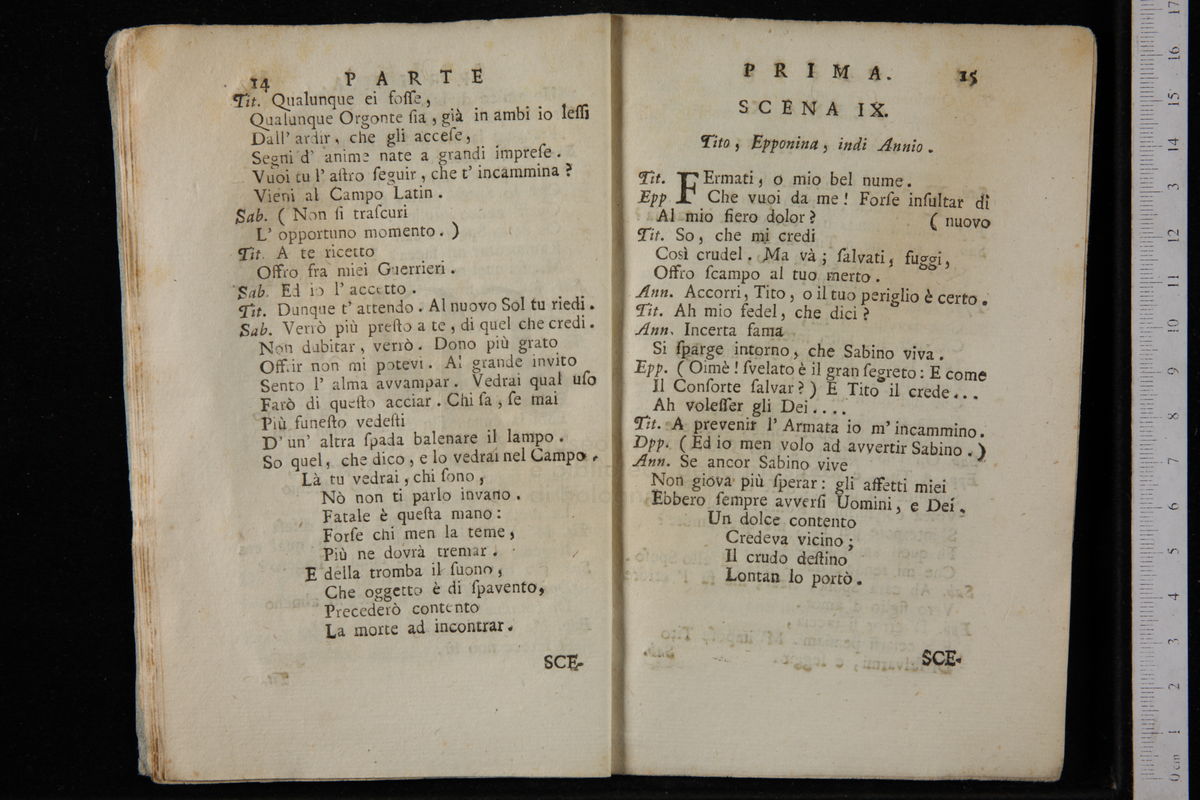 14 PARTE
Tit. Qualunque ei foſſe,
Qualunque Orgonte ſia, già in ambi io leſſi
Dall' ardir, che gli acceſe,
Segni d' anime nate a grandi impreſe.
Vuoi tu l' aſtro ſeguir, che t' incammina?
Vieni al Campo Latin.
Sab. (Non ſi traſcuri
L' opportuno momento.)
Tit. A te ricetto
Offro fra miei Guerrieri.
Sab. Ed io l' accetto.
Tit. Dunque t' attendo. Al nuovo Sol tu riedi.
Sab. Verrò più preſto a te, di quel che credi.
Non dubitar, verrò. Dono più grato
Offrir non mi potevi. Al grande invito
Sento l' alma avvampar. Vedrai qual uſo
Farò di queſto acciar. Chi ſa, ſe mai
Più funeſto vedeſti
D' un' altra ſpada balenare il lampo.
So quel, che dico, e lo vedrai nel Campo.
Là tu vedrai, chi ſono,
Nò non ti parlo invano.
Fatale è queſta mano:
Forſe chi men la teme,
Più ne dovrà tremar.
E della tromba il ſuono,
Che oggetto è di ſpavento,
Precederò contento
La morte ad incontrar.
SCE-
PRIMA. 15
SCENA IX.
Tito, Epponina, indi Annio.
Tit. FErmati, o mio bel nume.
Epp Che vuoi da me! Forſe inſultar di
Al mio fiero dolor? (nuovo
Tit. So, che mi credi
Così crudel. Ma và; ſalvati, fuggi,
Offro ſcampo al tuo merto.
Ann. Accorri, Tito, o il tuo periglio è certo.
Tit. Ah mio fedel, che dici?
Ann. Incerta fama
Si ſparge intorno, che Sabino viva.
Epp. (Oimè! ſvelato è il gran ſegreto: E come
Il Conſorte ſalvar?) E Tito il crede...
Ah voleſſer gli Dei....
Tit. A prevenir l' Armata io m' incammino.
Dpp. (Ed io men volo ad avvertir Sabino.)
Ann. Se ancor Sabino vive
Non giova più ſperar: gli affetti miei
Ebbero ſempre avverſi Uomini, e Dei.
Un dolce contento
Credeva vicino;
Il crudo deſtino
Lontan lo portò.
SCE-
0 cm 1 2 3 4 5 6 7 8 9 10 11 12 13 14 15 16 17